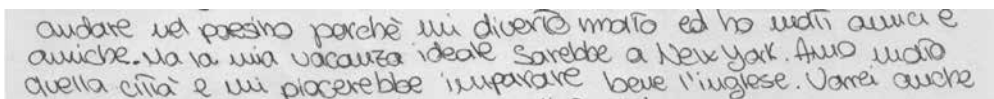 andare nel paesino perchè mi diverto molto ed ho molti amici e
amiche. Ma la mia vacanza ideale sarebbe a New York. Amo molto
quella città e mi piacerebbe imparare bene l'inglese. Vorrei anche